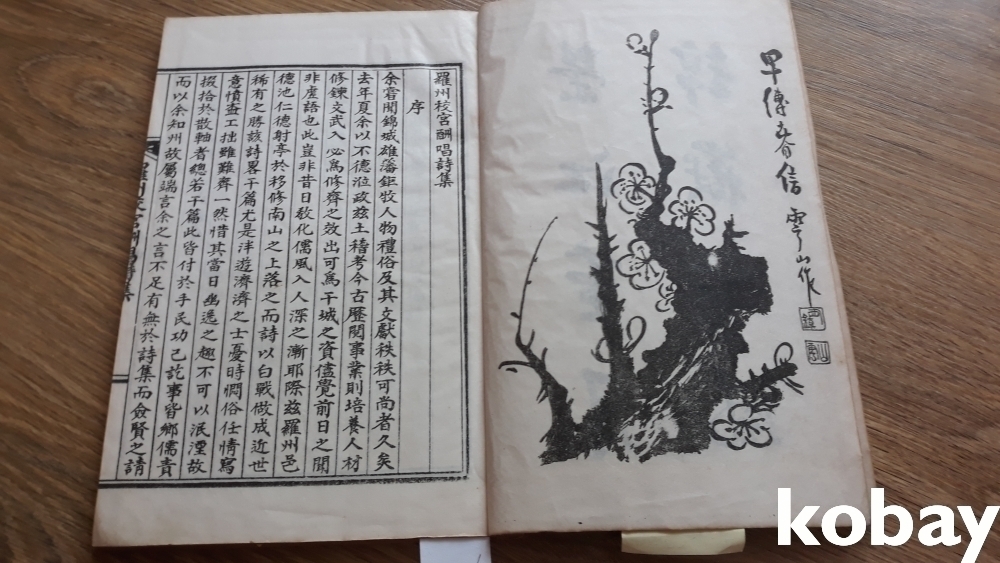 早傳春信 雪山作
羅州校宮酬唱詩集
序
余嘗聞錦城雄藩鉅牧人物禮俗及其文獻秩秩可尚者久矣
去年夏余以不德涖政玆土稽考今古歷閱事業則培養人材
修鍊文武入必爲修齊之效出可爲干城之資儘覺前日之聞
非虛語也此豈非昔日敎化儒風入人深之漸耶際玆羅州邑
德池仁德射亭於移修南山之上落之而詩以白戰做成近世
稀有之勝該詩畧千篇尤是泮遊濟濟之士憂時憫俗任情寫
意憤查工拙雖難齊一然惜其當日幽逸之趣不可以泯湮故
掇拾於散軸者總若干篇此皆付於手民功已訖事皆鄉儒責
而以余知州故屬端言余之言不足有無於詩集而僉賢之請
kobay